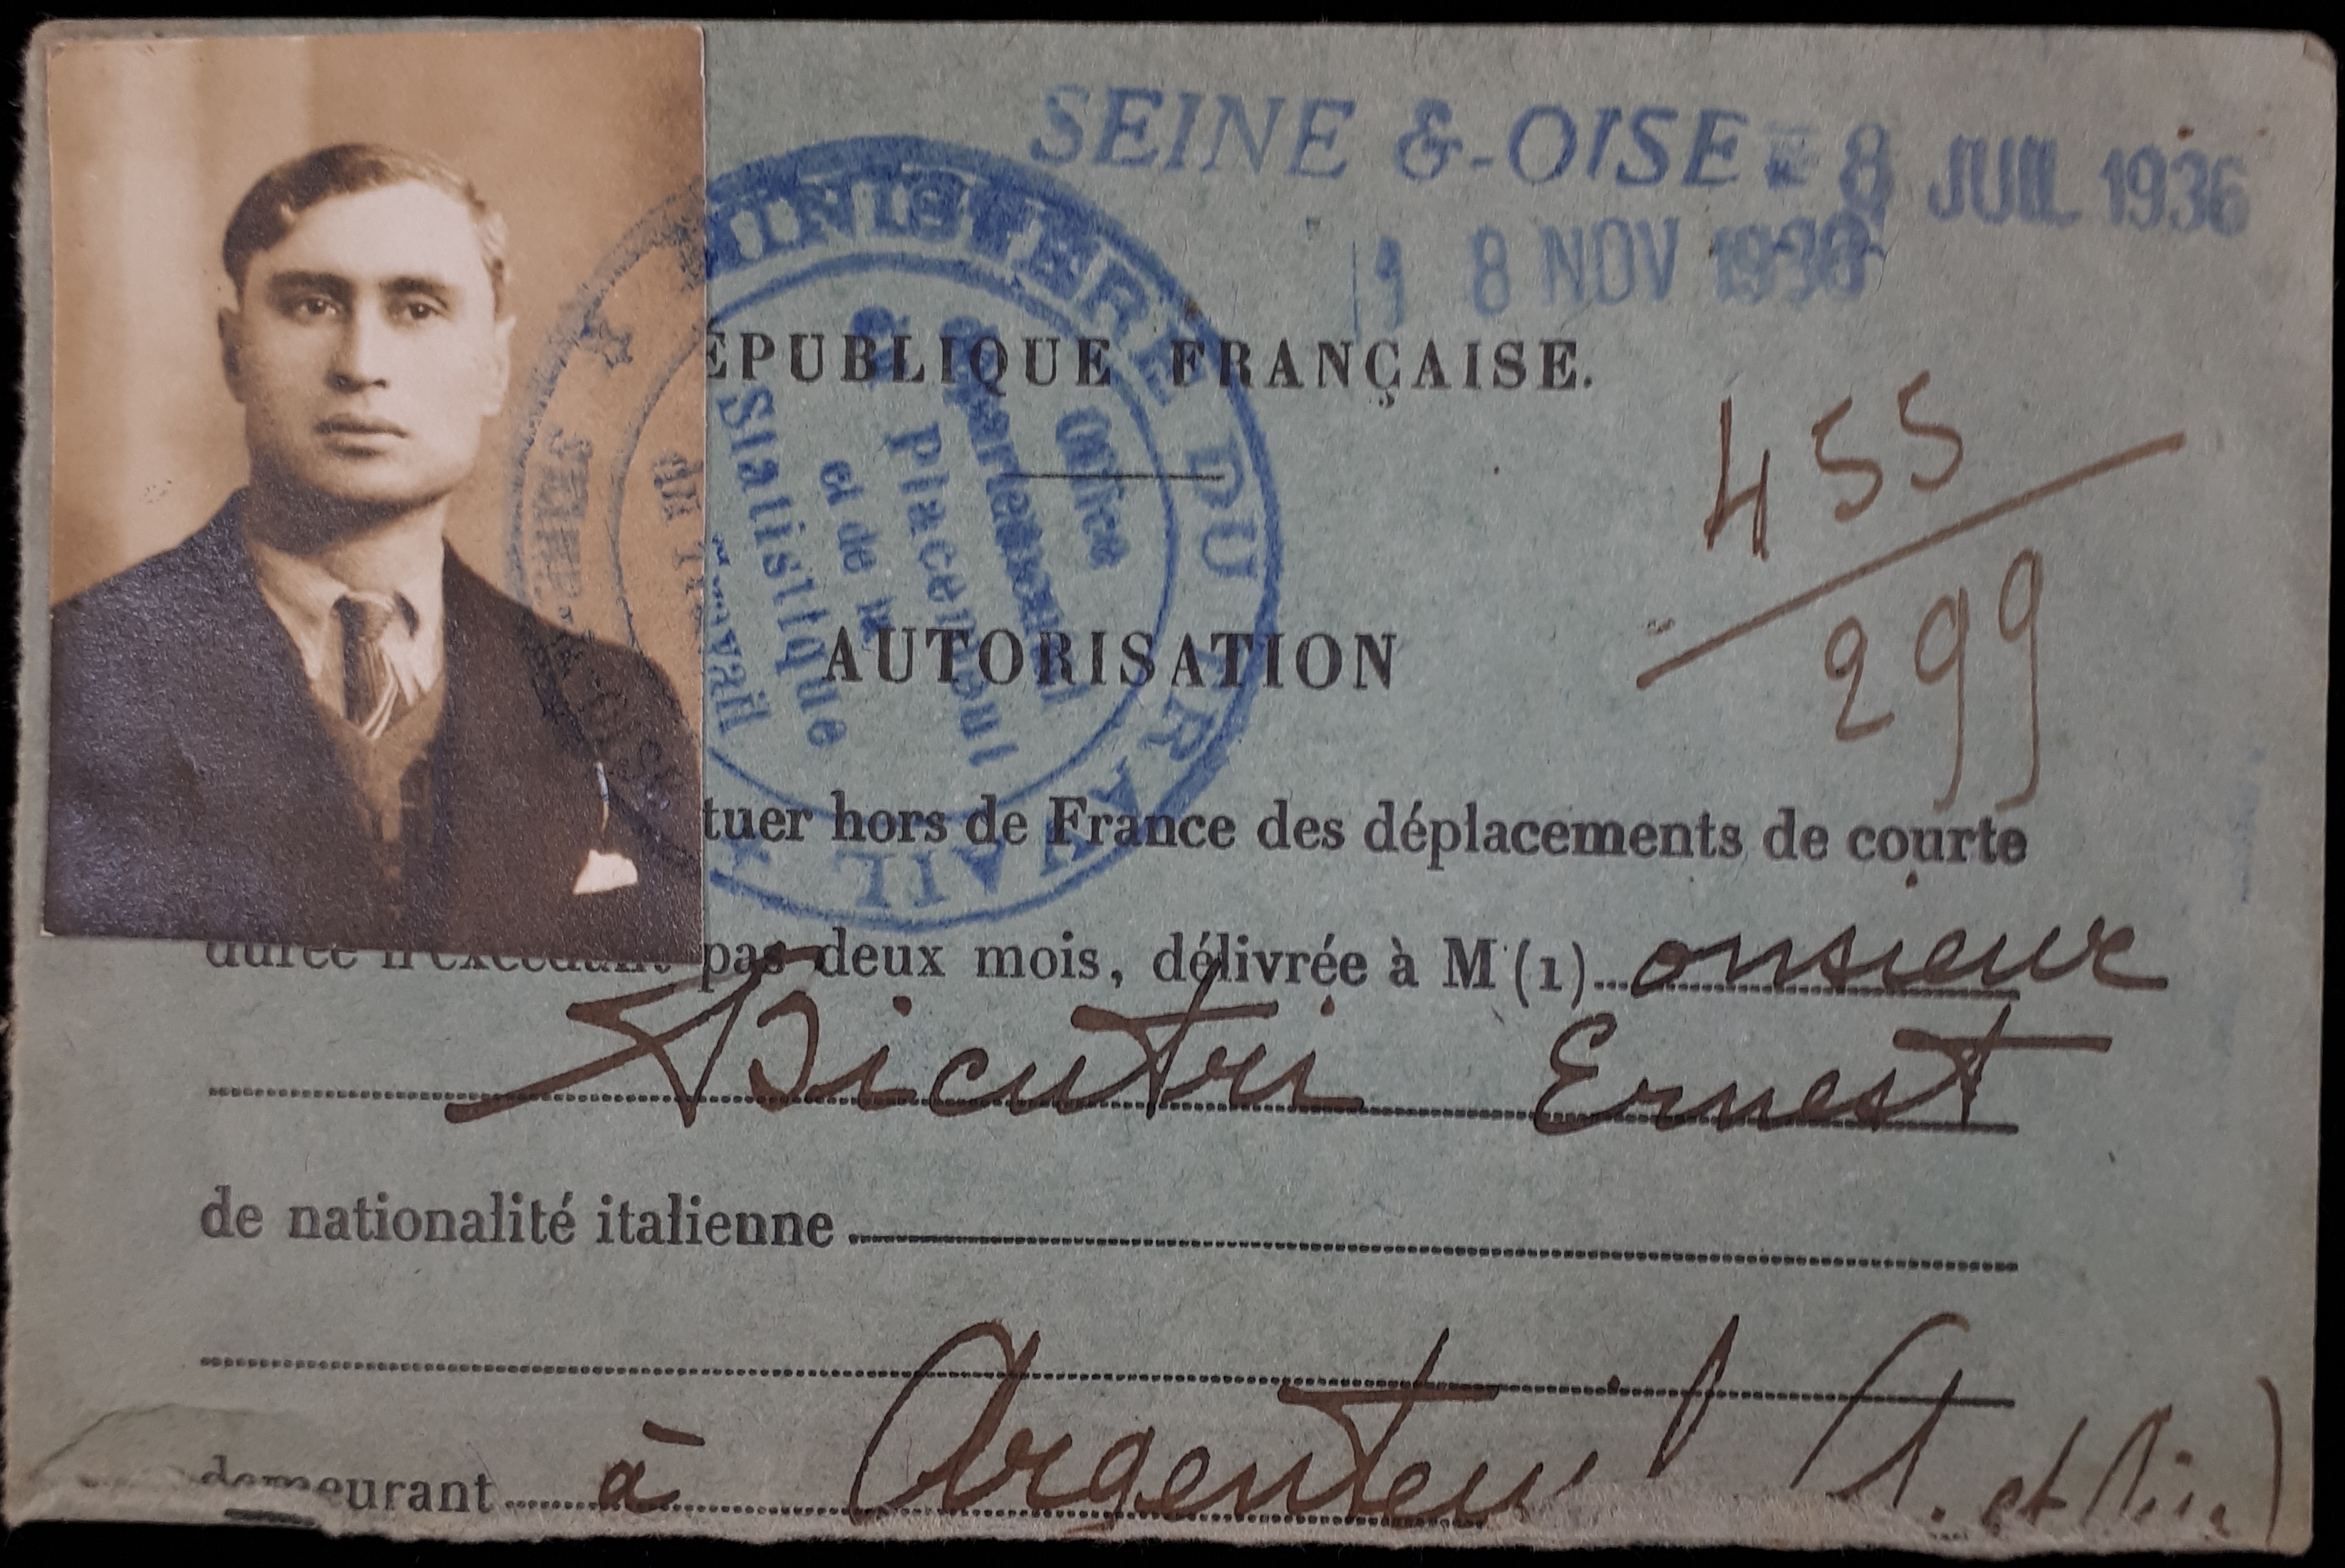 SEINE & OISE - 8 JUIL 1936
8 NOV
MINISTÈRE DU TRAVAIL
SEINE-&-OISE
Office
Départemental
de
Placement
et de la
Statistique
du Travail
ÉPUBLIQUE FRANÇAISE.
455
299
AUTORISATION
tuer hors de France des déplacements de courte
durée n'excédant pas deux mois, délivrée à M (1) onsieur
Bicutri Ernest
de nationalité italienne
demeurant à Argenteuil (S. et Oise)